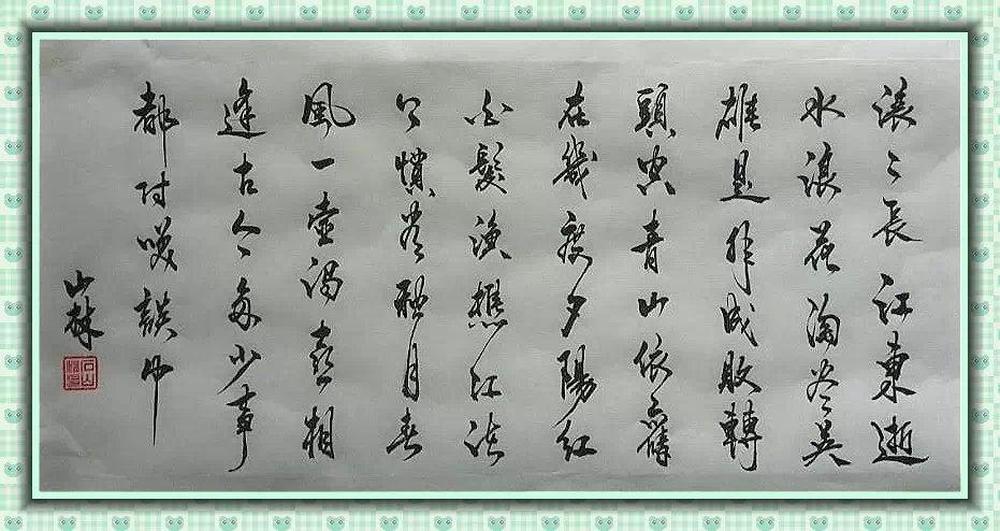 滚〻長江東逝
水浪花淘尽英
雄是非成敗轉
頭空青山依舊
在幾度夕陽紅
白髮漁樵江渚
上慣看秌月春
風一壺濁喜相
逢古今多少事
都付咲談中
山林
石山